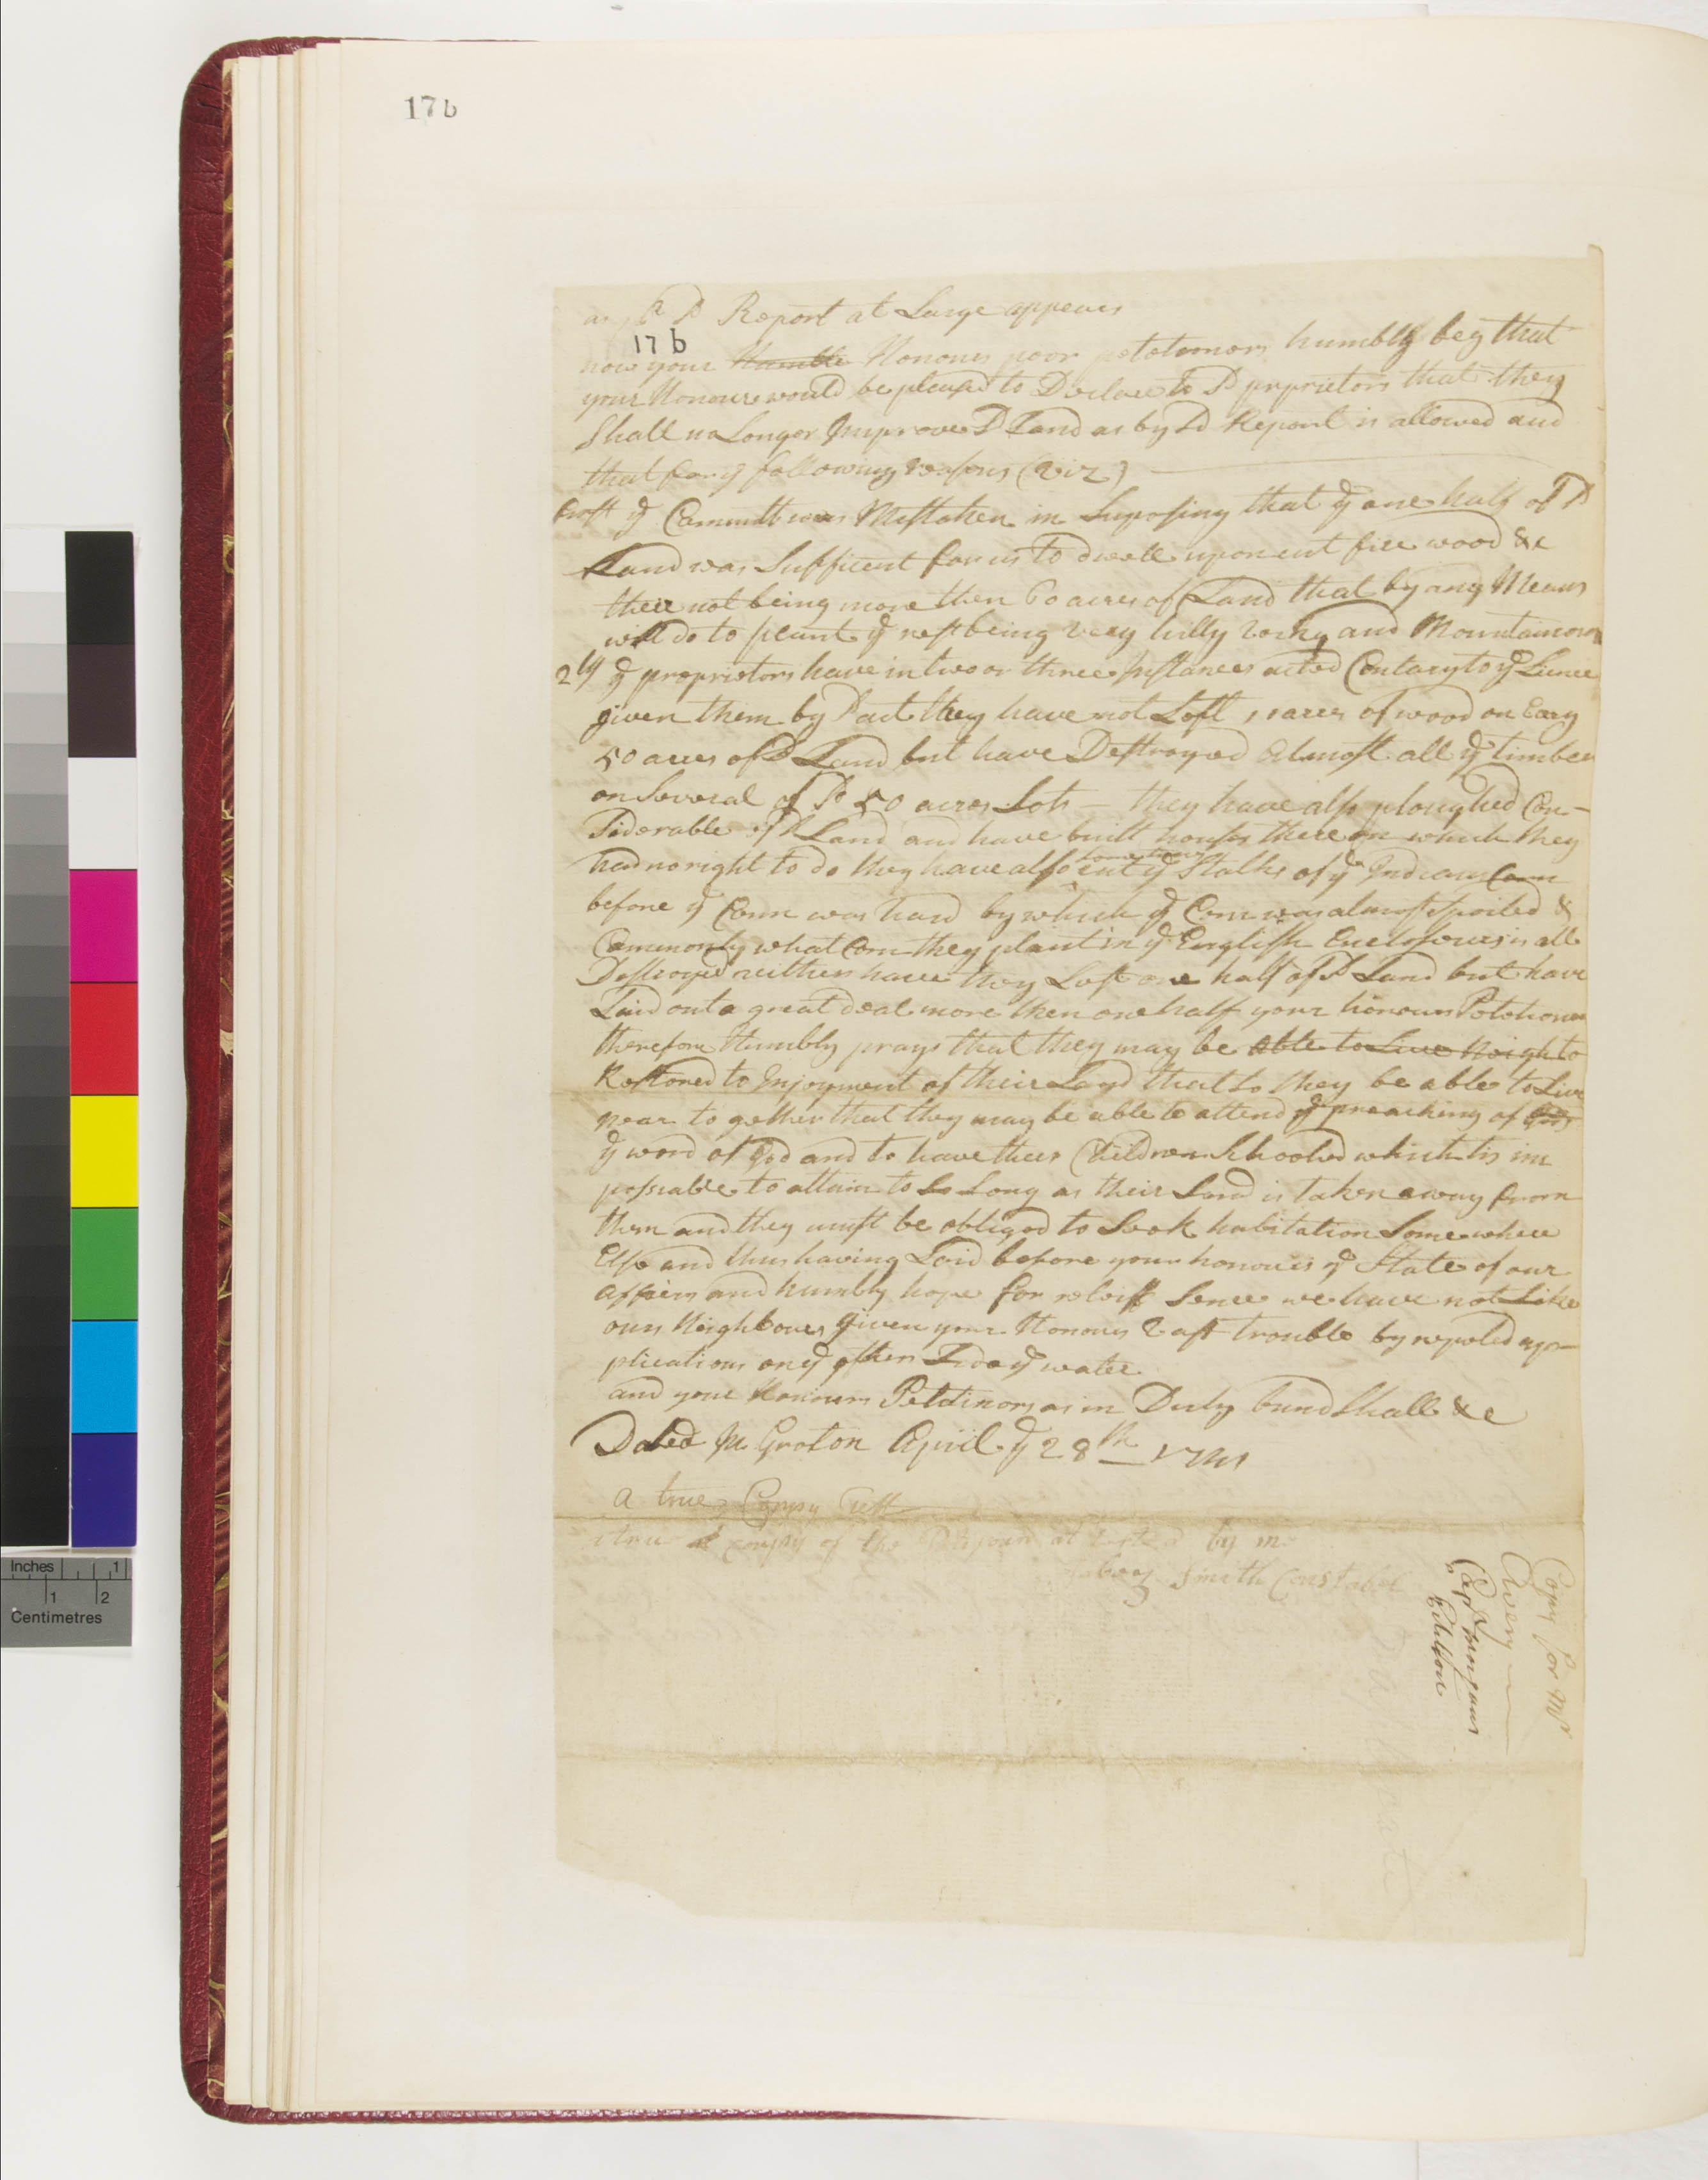 17 b
as p sd Report at Large appears
17 b
now your Humble Honours poor petetionors humbly beg that
your Honours would be pleased to Declare to sd proprietors that they
Shall no Longer Improve sd Land as by sd Report is allowed and
that for ye following reasons (viz)
first ye Committ was Mistaken in Suposing that ye one half of sd
Land was Sufficent for us To dwell upon cut fire wood &c
there not being more then 60 acres of Land that by any Means
will do to plant ye rest being very hilly rocky and Mountainous
2ly ye proprietors have in two or three Instances acted Contary to ye
given them by sd act they have not Left acres of wood on Eavry
50 acres of sd Land but have Destroyed almost all ye timber
on Several of sd 50 acres Lots – they have also ploughed Con-
siderable of sd Land and have built houses there on which they
had no right to do they have also sometimes cut ye Stalks of ye Indians Corn
before ye Corn was hard by which ye Corn was almost Spoiled &
Commonly what Corn they plant in ye English Enclosures is all
Destroyed neither have they Left one half of sd Land but have
Laid out a great deal more then one half your honours Petetioners
therefore Humbly prays that they may be able to Live Neigh to
Restored to Injoyment of their Land that so they be able to Live
near to gether that they may be able to attend ye preaching of God
ye word of God and to have theer Children Schooled which tis im
possiable to attain to So Long as their Land is taken away from
them and they must be obliged to Seek habitation Some where
Else and thus having Laid before your honours ye State of our
affairs and humbly hope for releif Sence we have not Like
our Neighbours given your Honours Vast trouble by repeted app-
plications on ye other Side ye water
and your Honours Petetinors as in Duty bund Shall &c
Dated In Groton April ye 28th 1741
a true Coppy Test
a true coppy of the attested by me
Smith Constabel
Copy for Mr
Avery
Capt